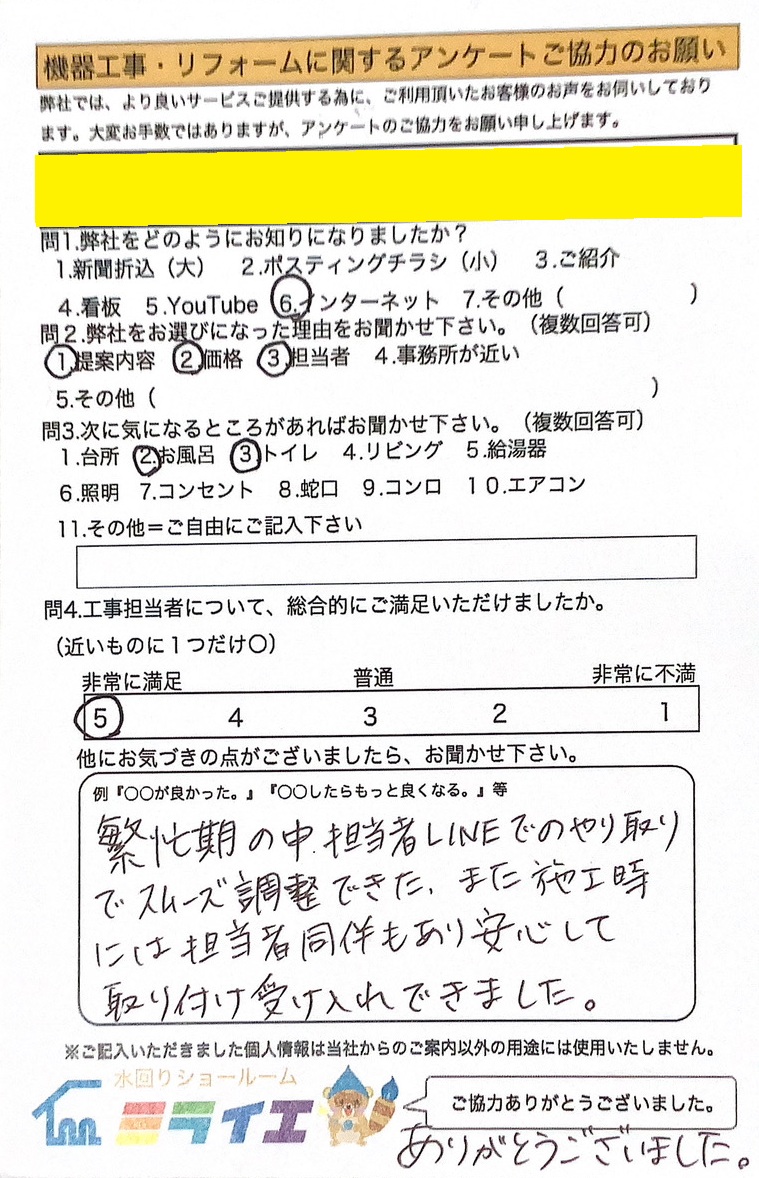 機器工事・リフォームに関するアンケートご協力のお願い
弊社では、より良いサービスご提供する為に、ご利用頂いたお客様のお声をお伺いしており
ます。大変お手数ではありますが、アンケートのご協力をお願い申し上げます。
問1.弊社をどのようにお知りになりましたか？
1.新聞折込（大） 2.ポスティングチラシ（小） 3.ご紹介
4.看板 5.YouTube 6.インターネット 7.その他（ ）
問2.弊社をお選びになった理由をお聞かせ下さい。（複数回答可）
1.提案内容 2.価格 3.担当者 4.事務所が近い
5.その他（ ）
問3.次に気になるところがあればお聞かせ下さい。（複数回答可）
1.台所 2.お風呂 3.トイレ 4.リビング 5.給湯器
6.照明 7.コンセント 8.蛇口 9.コンロ 10.エアコン
11.その他＝ご自由にご記入下さい
問4.工事担当者について、総合的にご満足いただけましたか。
（近いものに１つだけ〇）
非常に満足 普通 非常に不満
5 4 3 2 1
他にお気づきの点がございましたら、お聞かせ下さい。
例『〇〇が良かった。』『〇〇したらもっと良くなる。』等
繁忙期の中、担当者LINEでのやり取り
でスムーズ調整できた、また施工時
には担当者同伴もあり安心して
取り付け受け入れできました。
※ご記入いただきました個人情報は当社からのご案内以外の用途には使用いたしません。
水回りショールーム
ミライエ
ご協力ありがとうございました。
ありがとうございました。